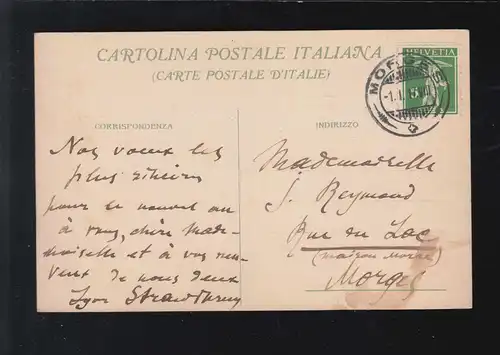 CARTOLINA POSTALE ITALIANA
(CARTE POSTALE D'ITALIE)
HELVETIA
5
MORGES
CORRISPONDENZA
INDIRIZZO
Nos voeux les
plus sincères
pour le nouvel an
à vous, chère Made-
moiselle et à vos
de nous deux
Igor Strawinsky
Mademoiselle
J. Reymond
Rue du Lac
(maison Morax)
Morges